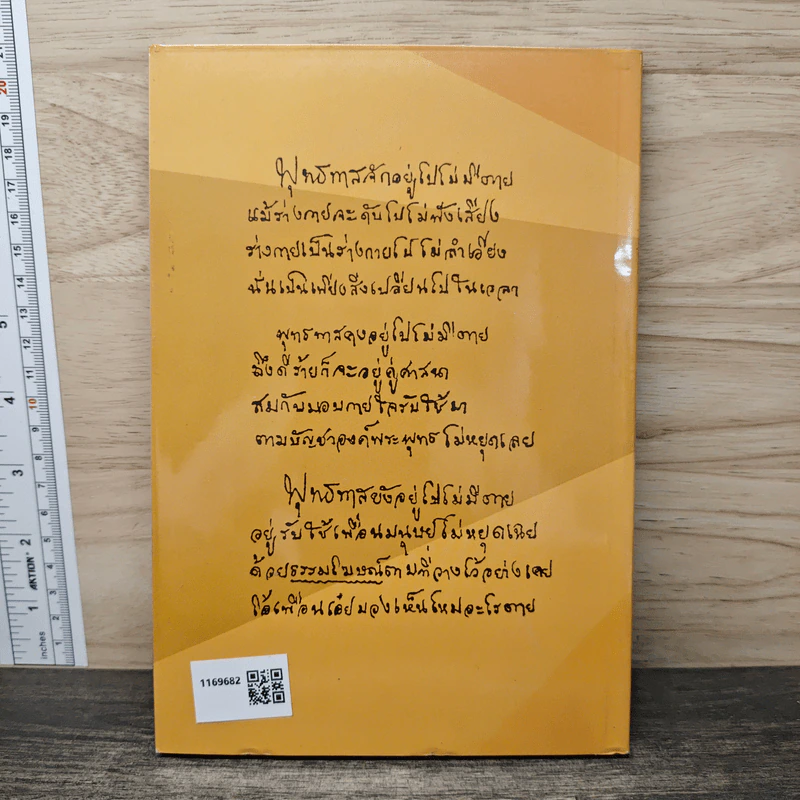 พุทธทาสจักอยู่ไปไม่มีตาย
แม้ร่างกายจะดับไปไม่ฟังเสียง
ร่างกายเป็นร่างกายไปไม่ลำเอียง
นั่นเป็นเพียงสิ่งเปลี่ยนไปในเวลา
พุทธทาสคงอยู่ไปไม่มีตาย
ถึงดีร้ายก็จะอยู่คู่ศาสนา
สมกับมอบกายใจรับใช้มา
ตามบัญชาองค์พระพุทธไม่หยุดเลย
พุทธทาสยังอยู่ไปไม่มีตาย
อยู่รับใช้เพื่อนมนุษย์ไม่หยุดเฉย
ด้วยธรรมโฆษณ์ตามที่วางไว้อย่างเคย
โอ้เพื่อนเอ๋ยมองเห็นไหมอะไรตาย
1169682
AKTION
inches